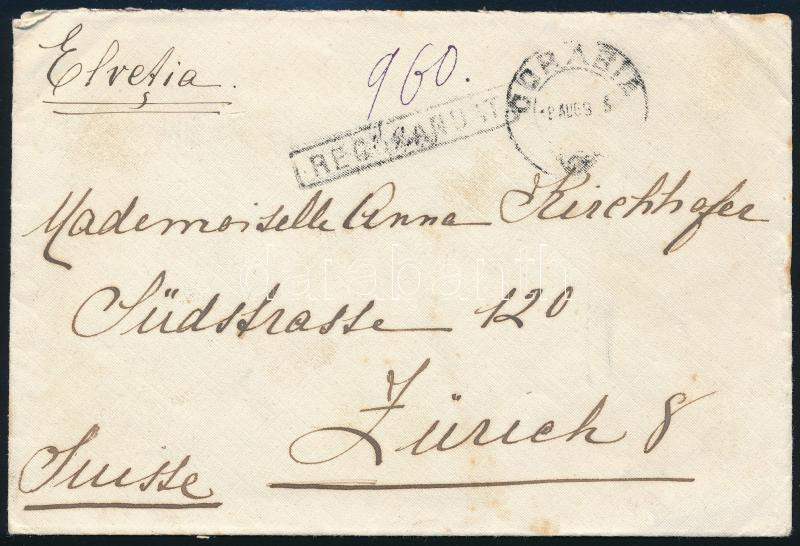 Elveția.
960.
RECOMANDAT
CORABIA
AUG
Mademoiselle Anna Kirchhofer
Südstrasse 120
Zürich 8
Suisse
darabanth